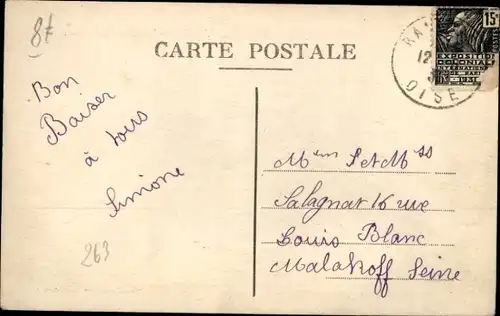 8f
CARTE POSTALE
15c
EXPOSITION
COLONIALE
INTERNATIONALE
PARIS
1931
POSTES
12
OISE
Bon
Baiser
à tous
Simone
263
Mem Set Mss
Salagnat 16 rue
Louis Blanc
Malakoff Seine